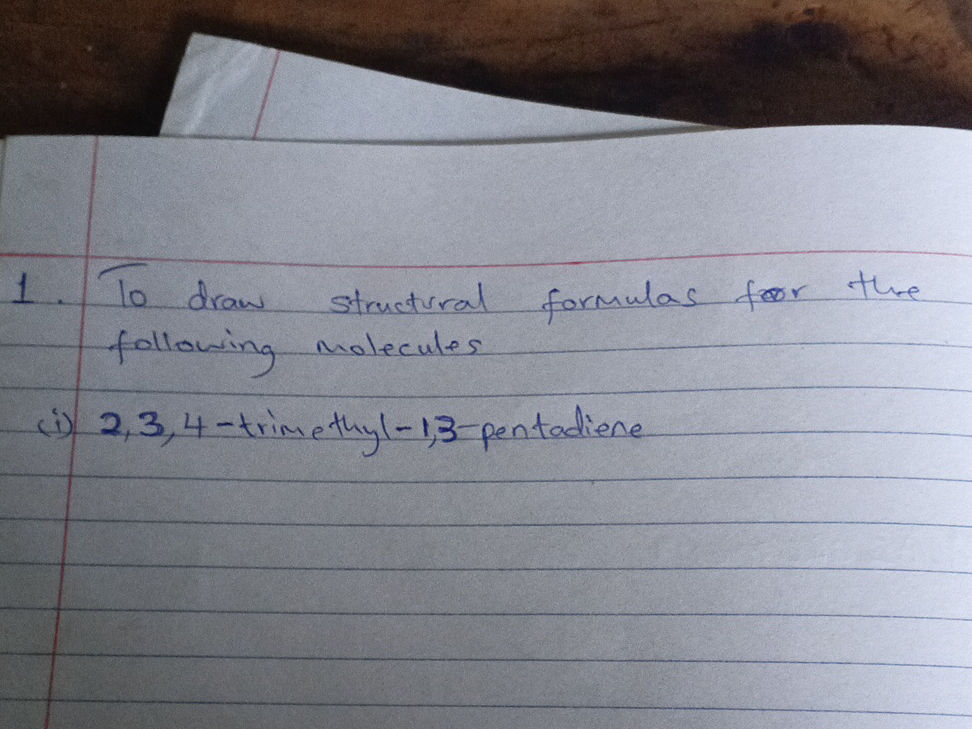 1. To draw structural formulas for the
following molecules
(i) 2,3,4-trimethyl-1,3-pentadiene